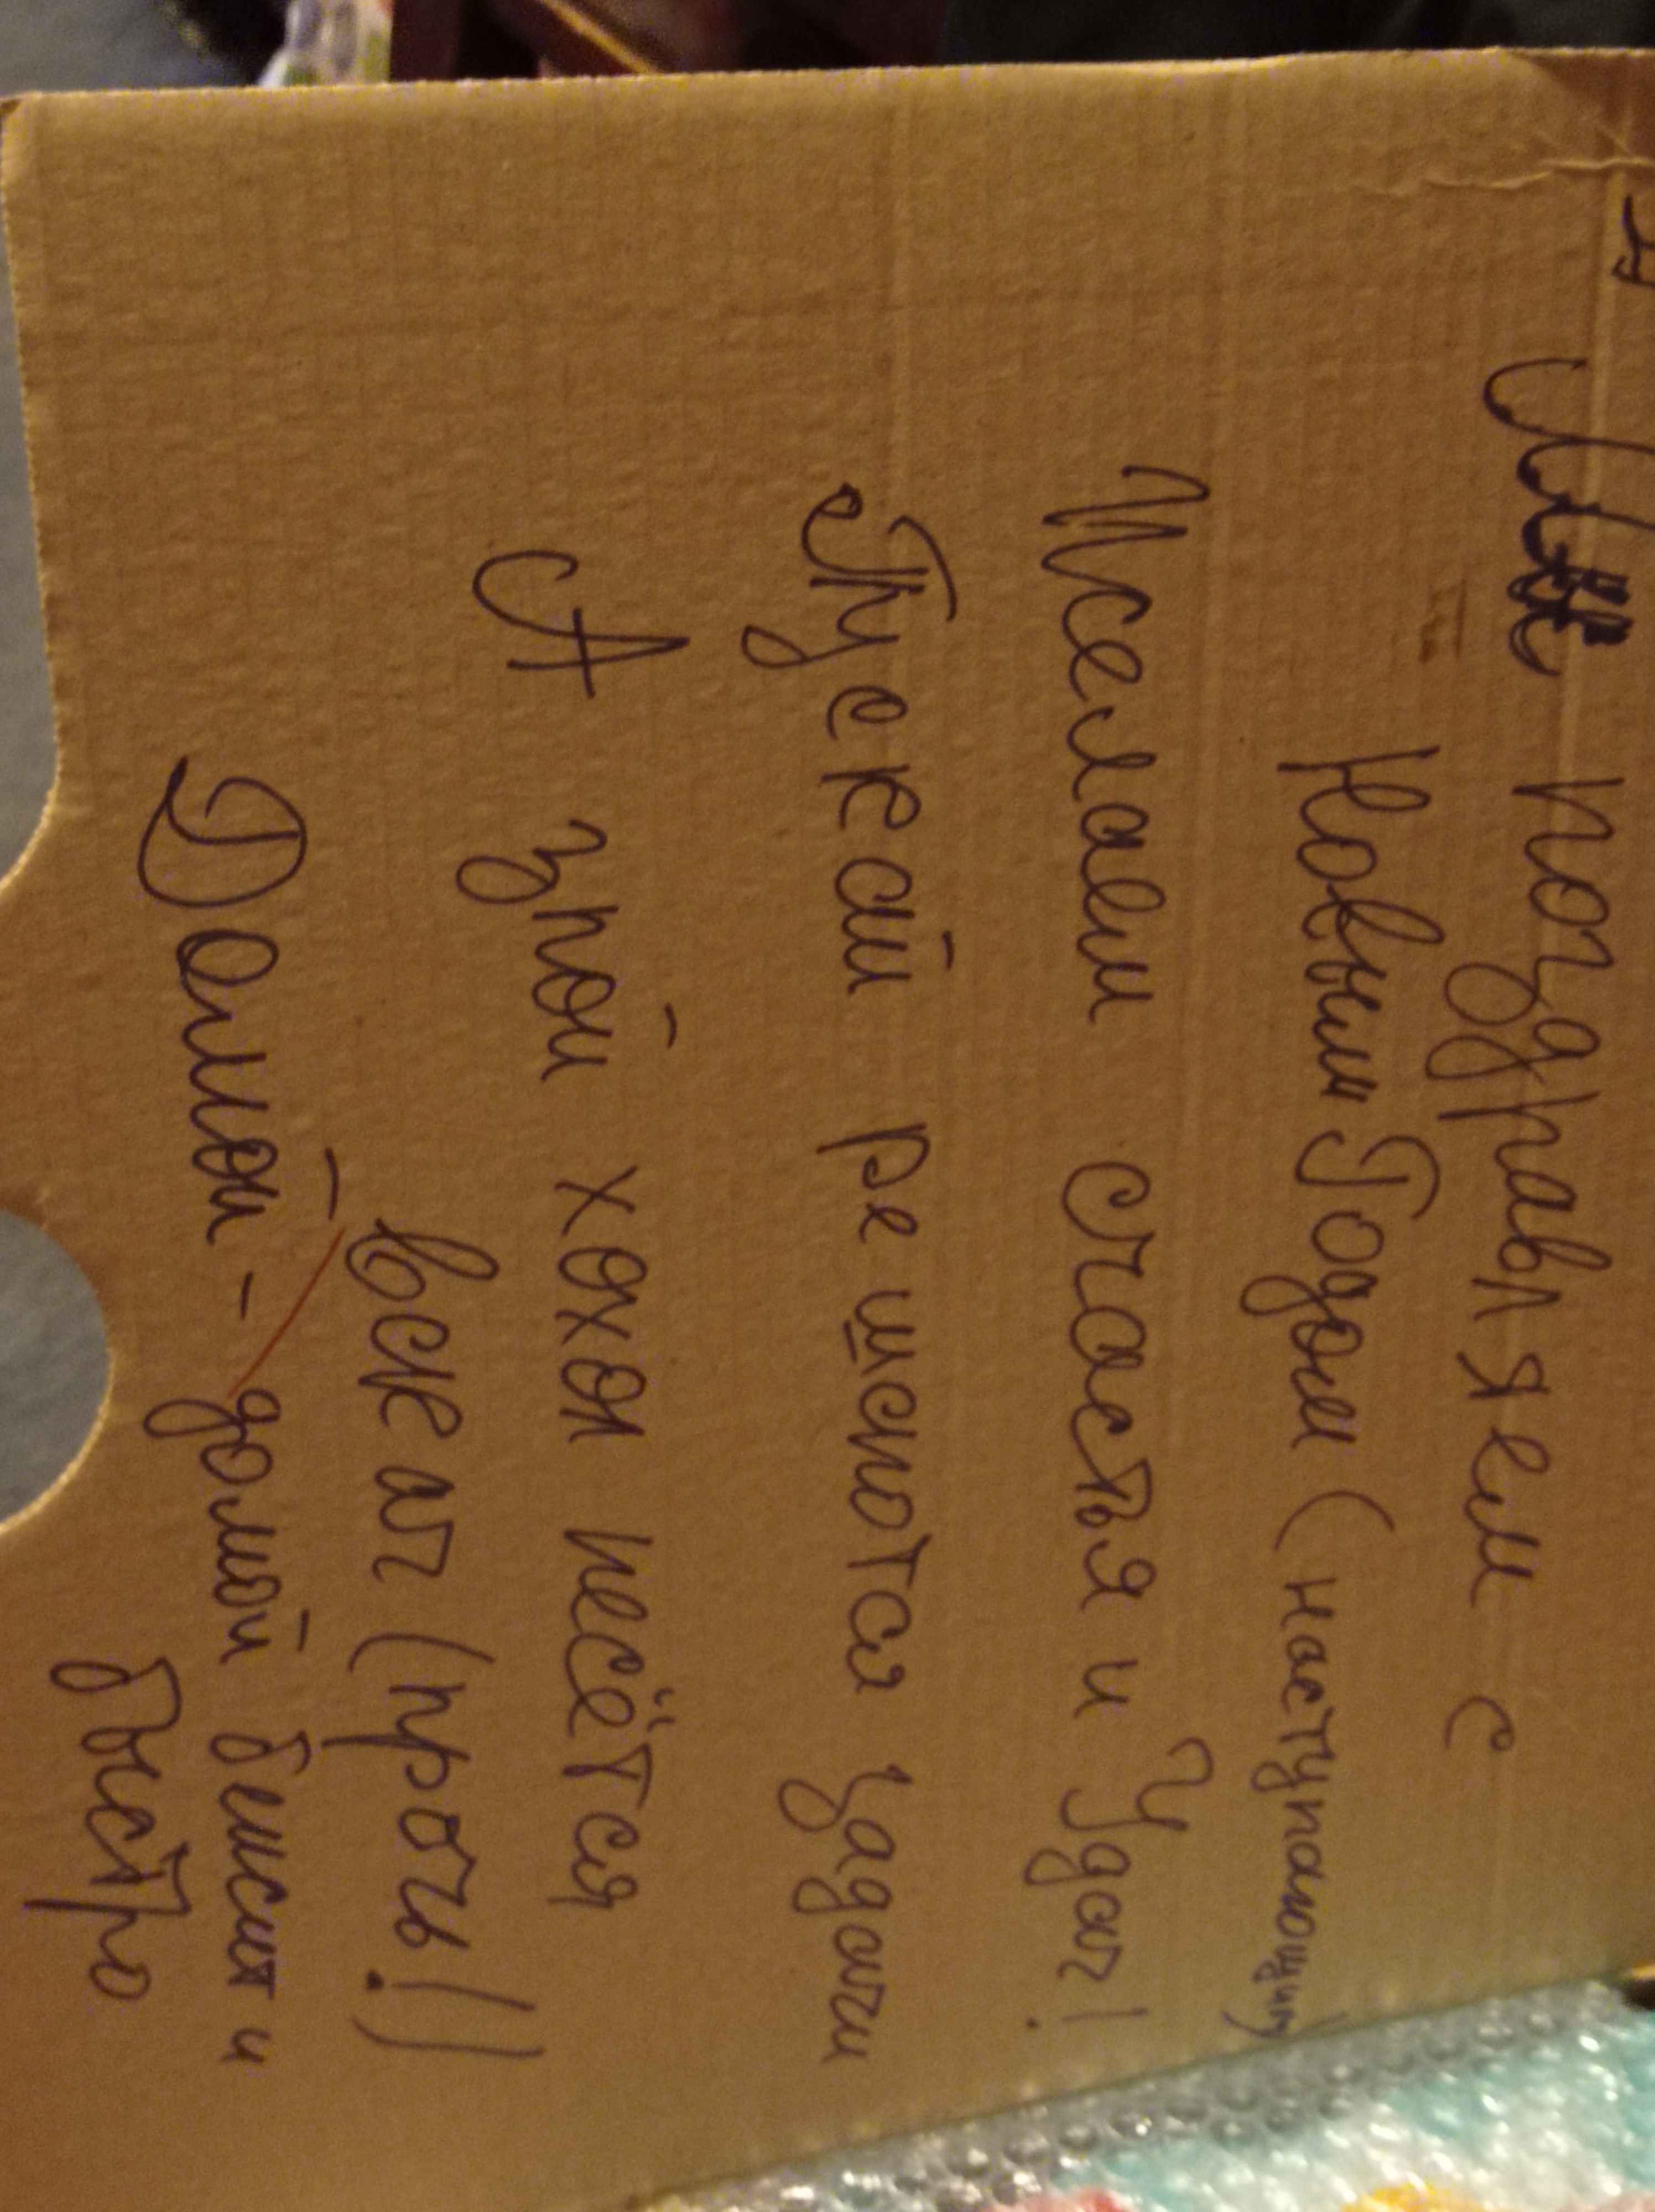 поздравляем с
Новым Годом (наступающим)
Желаем счастья и Удач!
Пускай решаются задачи
А злой хохол несётся
вскач (прочь!)
Долой - домой бежит и
быстро